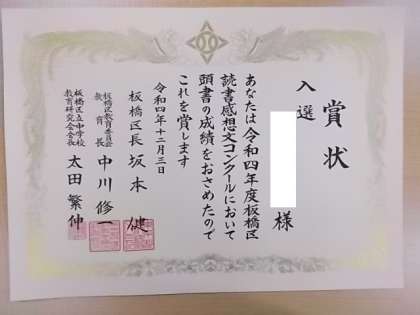 賞状
入選
様
あなたは令和四年度板橋区
読書感想文コンクールにおいて
頭書の成績をおさめたので
これを賞します
令和四年十二月三日
板橋区長 坂本 健
板橋区教育委員会
教育長 中川 修一
板橋区立中学校
教育研究会会長 太田 繁伸